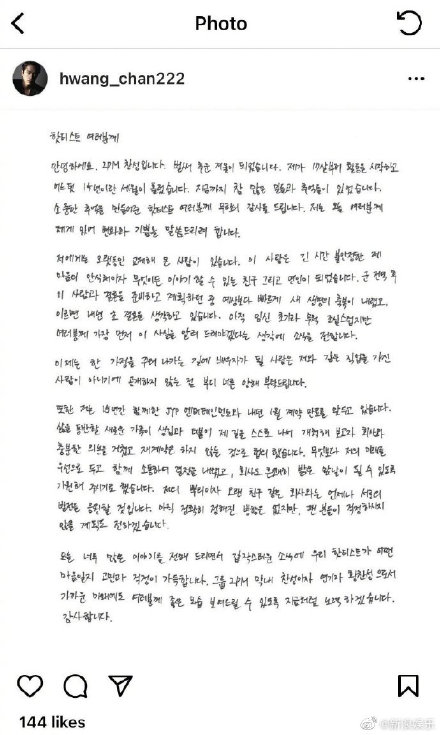 Photo
hwang_chan222
핫티스트 여러분께
안녕하세요. 2PM 찬성입니다. 벌써 추운 겨울이 되었습니다. 제가 17살부터 활동을 시작하고
어느 덧 15년이란 세월이 흘렀습니다. 지금까지 참 많은 일들과 추억들이 있었습니다.
소중한 추억을 만들어준 핫티스트 여러분께 무한히 감사를 드립니다. 저는 오늘 여러분께
제게 있어 변화와 기쁨을 말씀드리려 합니다.
저에게는 오랫동안 교제해 온 사람이 있습니다. 이 사람은 긴 시간 불안정한 제
마음의 안식처이자 무엇이든 이야기 할 수 있는 친구 그리고 연인이 되었습니다. 군 전역 후
이 사람과 결혼을 준비하고 계획하던 중 예상보다 빠르게 새 생명의 축복이 내렸고,
이르면 내년 초 결혼을 생각하고 있습니다. 아직 임신 초기라 무척 조심스럽지만
여러분께 가장 먼저 이 사실을 알려 드려야겠다는 생각에 소식을 전합니다.
이제는 한 가정을 꾸려 나가는 길에 배우자가 될 사람은 저와 같은 직업을 가진
사람이 아니기에 공개하지 않는 점 부디 너른 양해 부탁드립니다.
또한 저는 15년간 함께한 JYP 엔터테인먼트와 내년 1월 계약 만료를 앞두고 있습니다.
삶을 동반할 새로운 가족이 생김과 더불어 제 길을 스스로 나서 개척해 보고자 회사와
충분한 의논을 거쳤고 재계약은 하지 않는 것으로 합의 했습니다. 무엇보다 저의 미래를
우선으로 두고 함께 소통하며 결정을 내렸고, 회사도 온전히 밝은 앞날이 될 수 있도록
기원해 주기로 했습니다. 저의 뿌리이자 오랜 친구 같은 회사와는 언제나 서로의
발전을 응원할 것입니다. 아직 정확히 정해진 방향은 없지만, 팬 분들이 걱정하시지
않을 계획도 전하겠습니다.
오늘 너무 많은 이야기를 전해 드리면서 갑작스러운 소식에 우리 핫티스트가 어떤
마음일지 고민과 걱정이 가득합니다. 그룹 2PM 막내 찬성이자 연기자 황찬성으로서
가까운 미래에도 여러분께 좋은 모습 보여드릴 수 있도록 지금처럼 노력하겠습니다.
감사합니다.
144 likes
@新浪娱乐